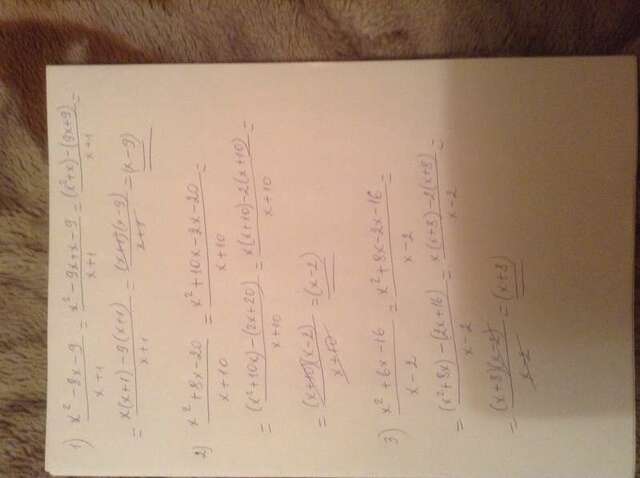 1) x² - 8x - 9 / x + 1 = x² - 9x + x - 9 / x + 1 = (x² + x) - (9x + 9) / x + 1 =
= x(x + 1) - 9(x + 1) / x + 1 = (x + 1)(x - 9) / x + 1 = (x - 9)
2) x² + 8x - 20 / x + 10 = x² + 10x - 2x - 20 / x + 10 =
= (x² + 10x) - (2x + 20) / x + 10 = x(x + 10) - 2(x + 10) / x + 10 =
= (x + 10)(x - 2) / x + 10 = (x - 2)
3) x² + 6x - 16 / x - 2 = x² + 8x - 2x - 16 / x - 2 =
= (x² + 8x) - (2x + 16) / x - 2 = x(x + 8) - 2(x + 8) / x - 2 =
= (x + 8)(x - 2) / x - 2 = (x + 8)